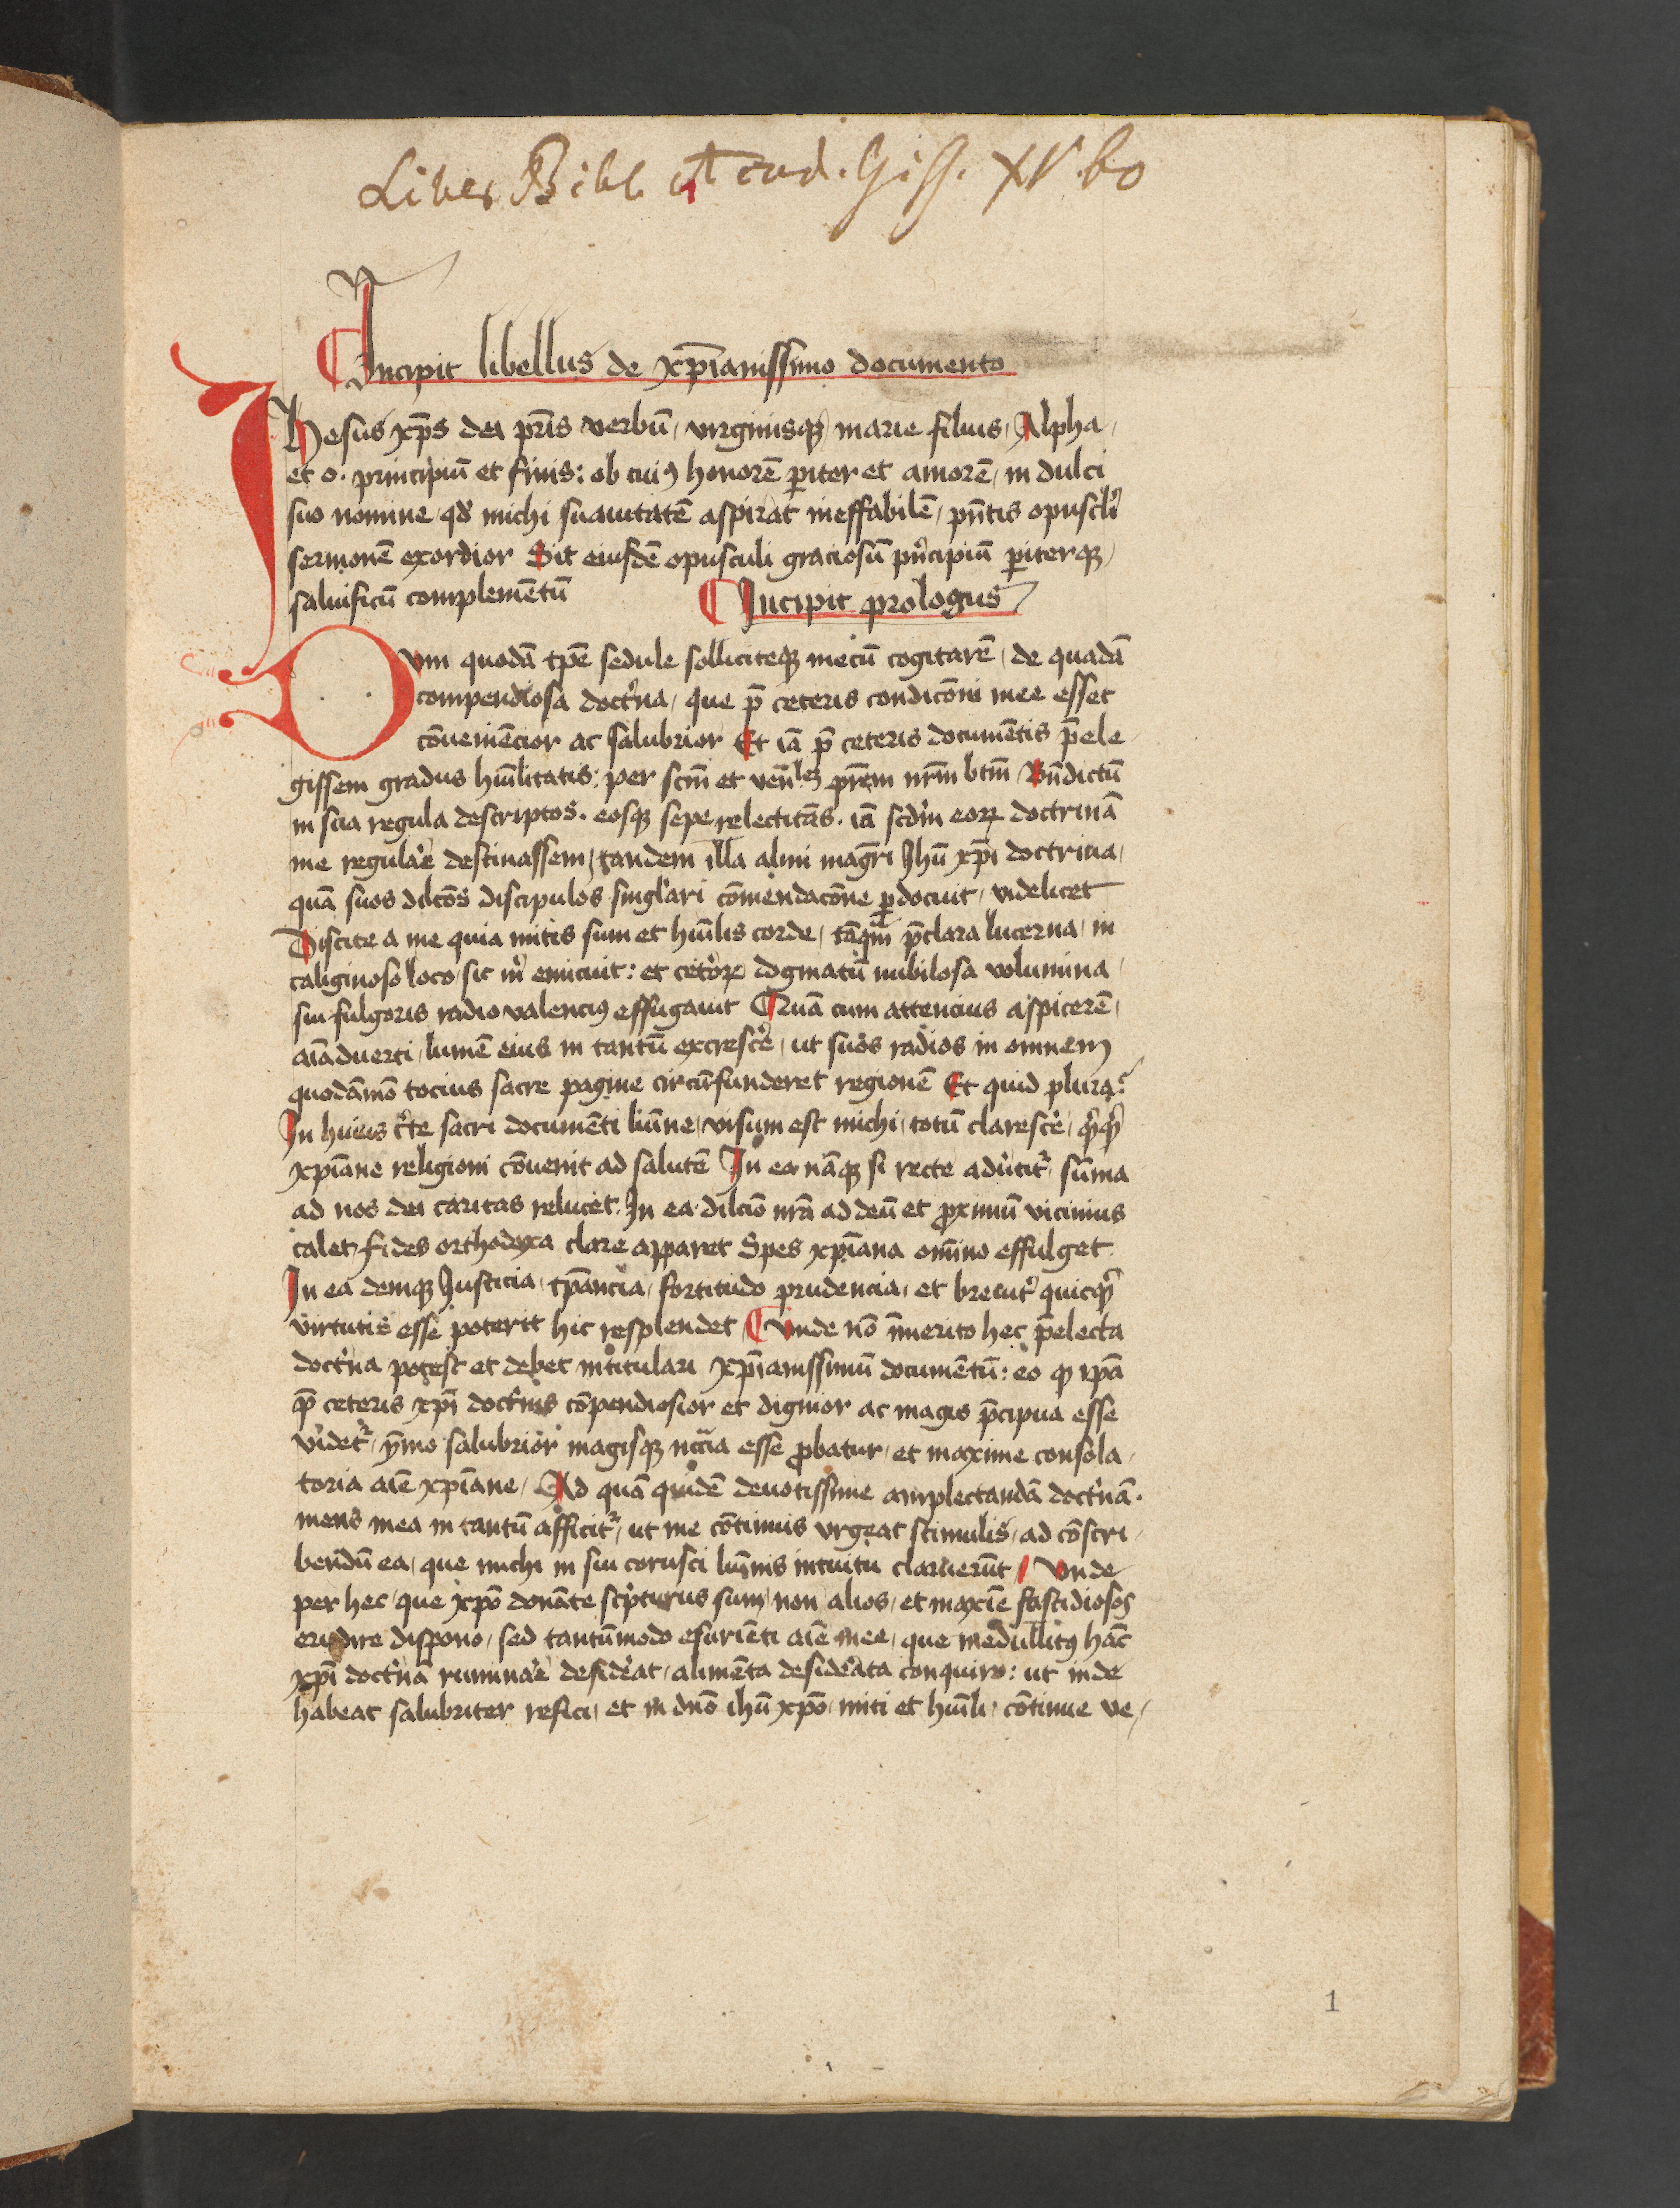 Liber Bibl. Acad. Giss. XV. bo
Incipit libellus de xp̄ianissimo documento
Ihesus xp̄s dei pr̄is verbū / virginisqꝫ marie filius / Alpha /
et o. principiū et finis : ob cuiꝰ honorē ꝑiter et amorē / in dulci
suo nomine / qd̓ michi suauitatē aspirat ineffabilē / pn̄tis opuscli̓
sermonē exordior Sit eiusdē opusculi graciosū pn̓cipiū ꝑiterqꝫ /
saluificū complemētū
Incipit prologus
Dvm quodā tp̄e sedule solliciteqꝫ mecū cogitarē / de quadā
compendiosa doct̓na / que p̄ ceteris condicōni mee esset
cōueniēcior ac salubrior Et iā p̄ ceteris documētis p̄ele /
gissem gradus hūilitatis : per scm̄ et ven̄lē pr̄em nr̄m btm̄ Bn̄dictū
in sua regula descriptos . eosqꝫ sepe relectitās . iā scd̓m eoꝝ doctrinā
me regular̓e destinassem / tandem illa almi magr̄i Jhū xp̄i doctrina /
quā suos dilcōs discipulos singl̓ari cōmendacōne ꝑdocuit / videlicet
Discite a me quia mitis sum et hūilis corde / tāqm̄ p̄clara lucerna / in
caliginoso loco / sic m̓ emicuit : et cet̓oꝝ dogmatū nubilosa volumina /
sui fulgoris radio valenciꝰ effugauit Quā cum attencius aspicerē /
aīaduerti / lumē eius in tantū excresce̓ / ut suos radios in omnem
quodāmō tocius sacre pagine circūfunderet regionē Et quid plura ?
In huius c̓te sacri documēti lūine / visum est michi / totū claresce̓ / qi̓cqi̓d
xp̄iane religioni cōuenit ad salutē In ea nāqꝫ si recte adu̓titr̓ / sūma
ad nos dei caritas relucet . In ea dilcīo nr̄a ad deū et ꝓximū vicinius
calet / fides orthodoxa clare apparet Spes xp̄iana om̄ino effulget .
In ea deniqꝫ Justicia / tp̄ancia / fortitudo prudencia / et breuit̓ quicqi̓d
virtutis esse poterit hic resplendet / Vnde nō īmerito hec p̄electa
doct̓na potest et debet intitulari xp̄ianissimū documētū : eo ꝙ ip̄a
p̄ ceteris xp̄i doct̓nis cōpendiosior et dignior ac magis p̄cipua esse
videtr̓ / ymo salubrior magisqꝫ nc̄cīa esse ꝓbatur / et maxime consola /
toria aīe xp̄iane / Ad quā quidē deuotissime amplectandā doct̓nā .
mens mea in tantū afficitr̓ / ut me cōtinuis vrgeat stimulis / ad cōscri /
bendū ea / que michi in sui corusci lūinis intuitu claruerūt / Vnde
per hec / que xp̄o donāte sc̓pturus sum / non alios / et maxīe fastidiosos
erudire dispono / sed tantūmodo esuriēti aīe mee / que medullitꝰ hāc
xp̄i doct̓nā ruminar̓e deside̓at / alimēta desid̓ata conquiro : ut inde
habeat salubriter refici / et in dn̄o ihū xp̄o / miti et hūili / cōtinue ve /
1